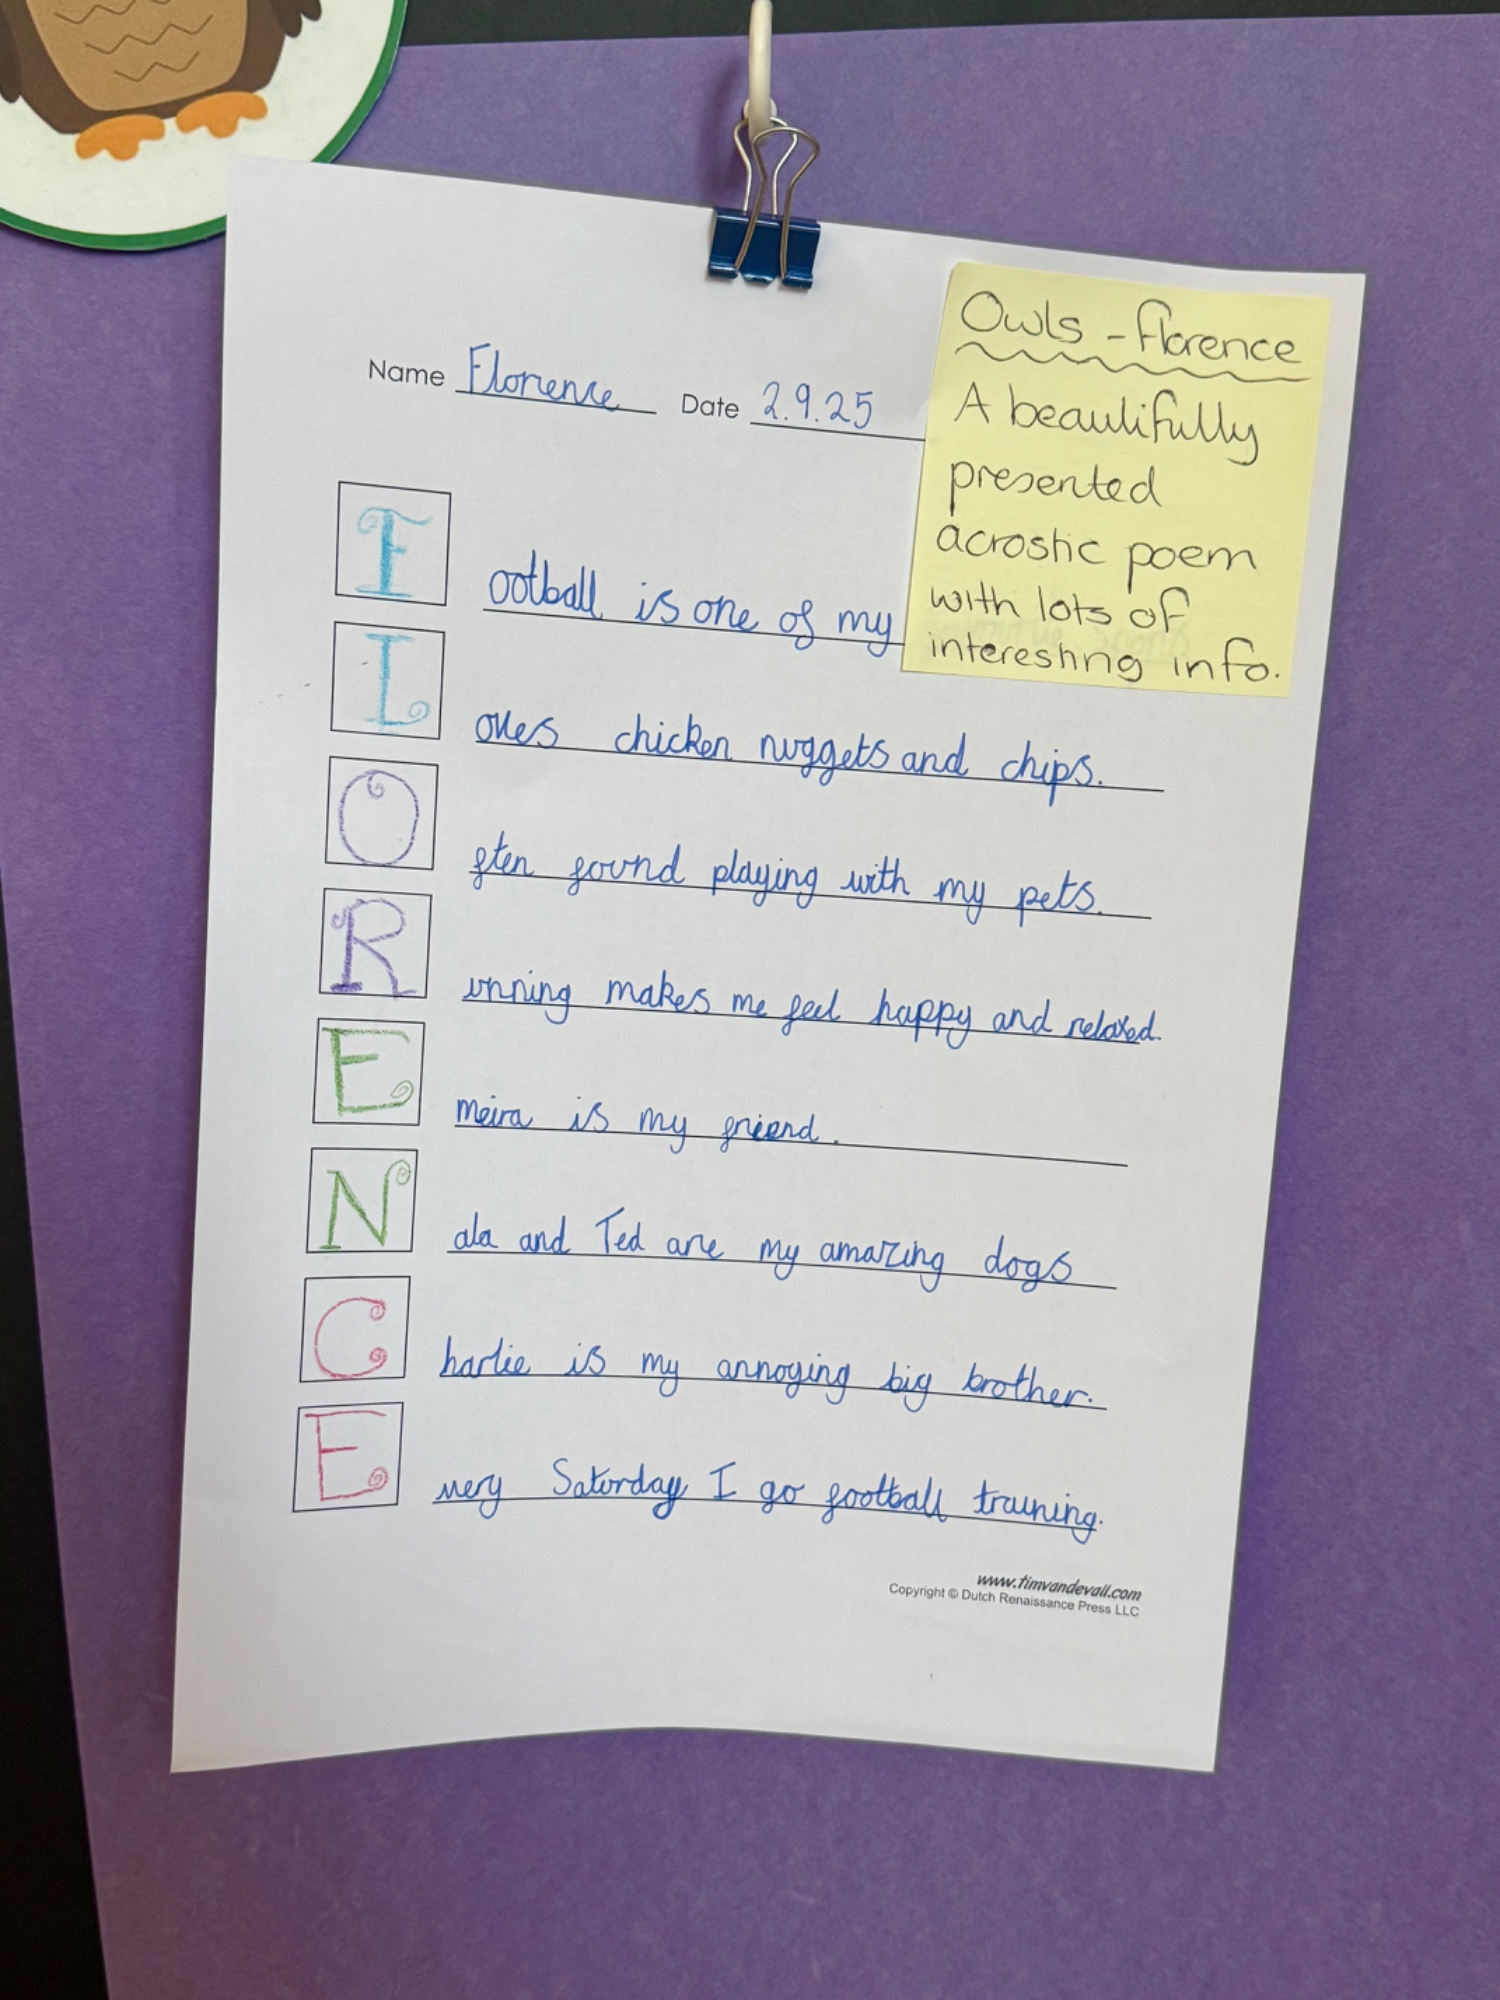 Name Florence Date 2.9.25
Owls - florence
A beautifully
presented
acrostic poem
with lots of
interesting info.
Football is one of my
Loves chicken nuggets and chips.
Often found playing with my pets.
Running makes me feel happy and relaxed.
Emeira is my friend.
Nala and Ted are my amazing dogs
Charlie is my annoying big brother.
Every Saturday I go football training.
www.timvandevall.com
Copyright © Dutch Renaissance Press LLC